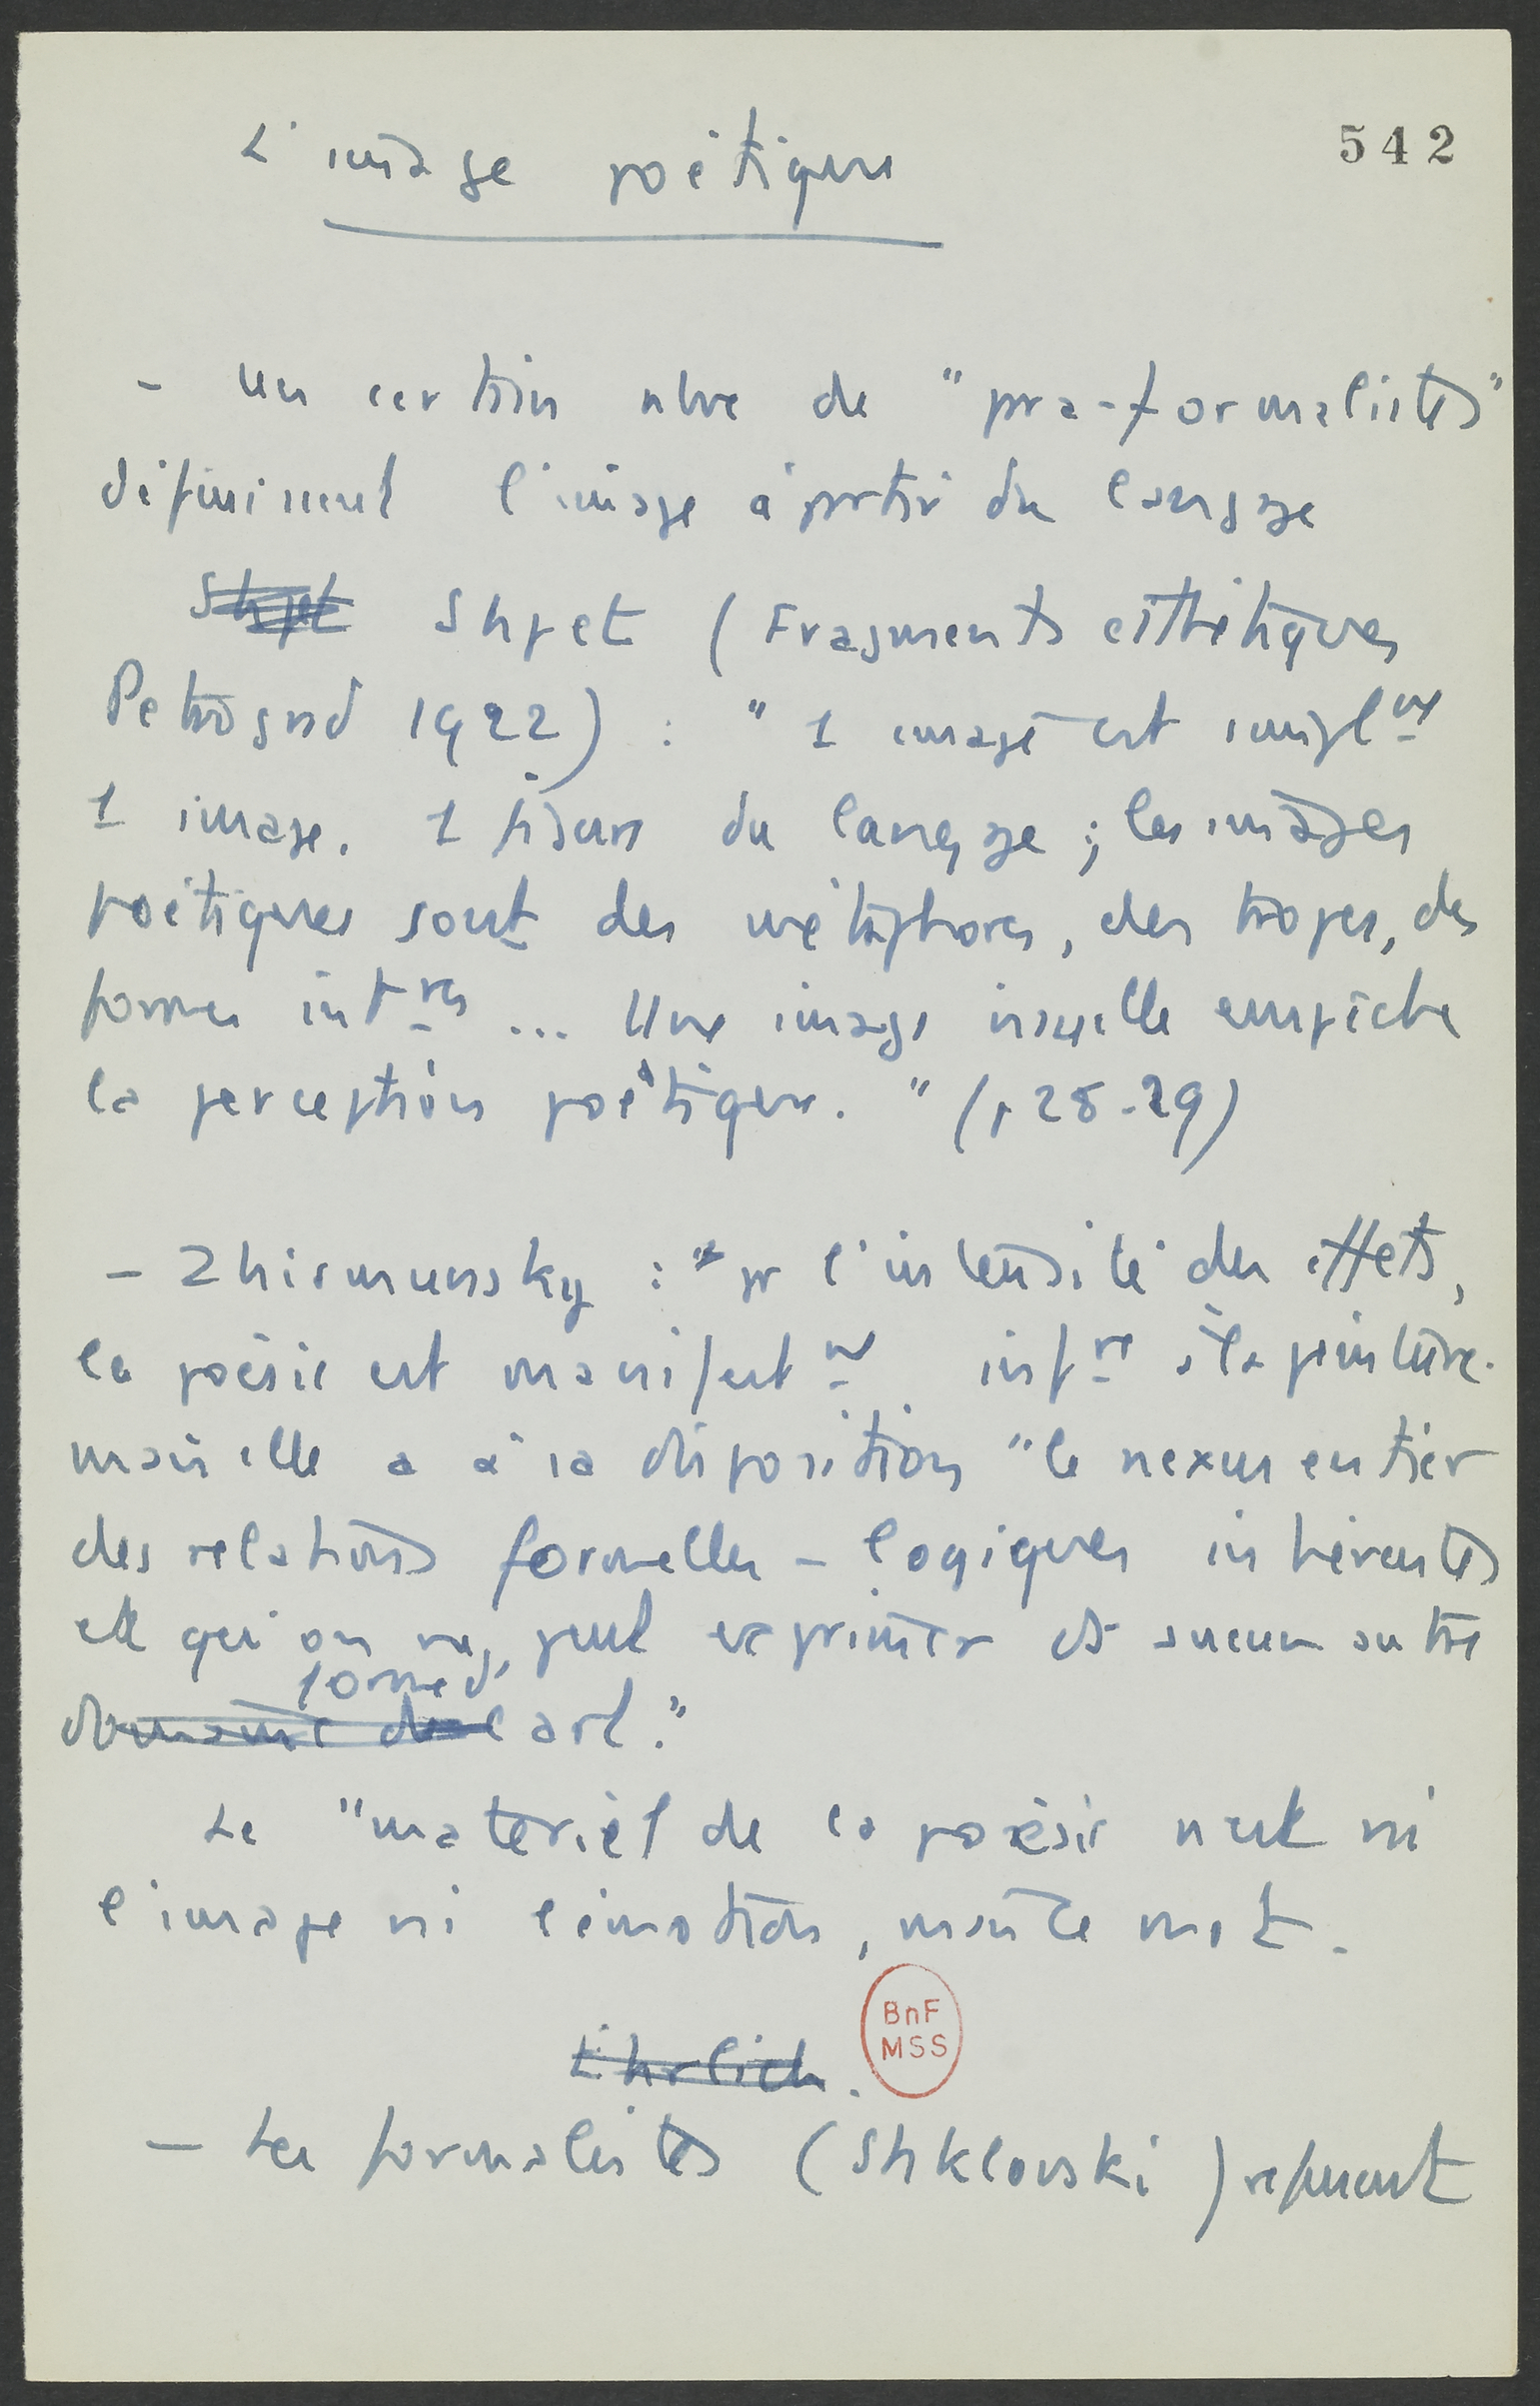 542
L'image poétique
- Un certain nbre de "pra-formalistes"
définissent l'image à partir du langage
Shpet Shpet (Fragments esthétiques
Petrograd 1922) : " 1 image est simplnt
1 image. 1 figure du langage ; les images
poétiques sont des métaphores, des tropes, des
formes intres ... Une image visuelle empêche
la perception poétique. " (p 28-29)
- Zhirmunsky : " pr l'intensité des effets,
la poésie est manifestnt infre à la peinture.
mais elle a à sa disposition "le nexus entier
des relations formelles - logiques inhérentes
et qui on ne peut exprimer ds aucun autre
forme d'
domaine de l art."
Le "matériel de la poésie n'est ni
l'image ni l'émotion, mais le mot.
Ehrlich.
BnF
MSS
- Les formalistes (Shklovski) refusent